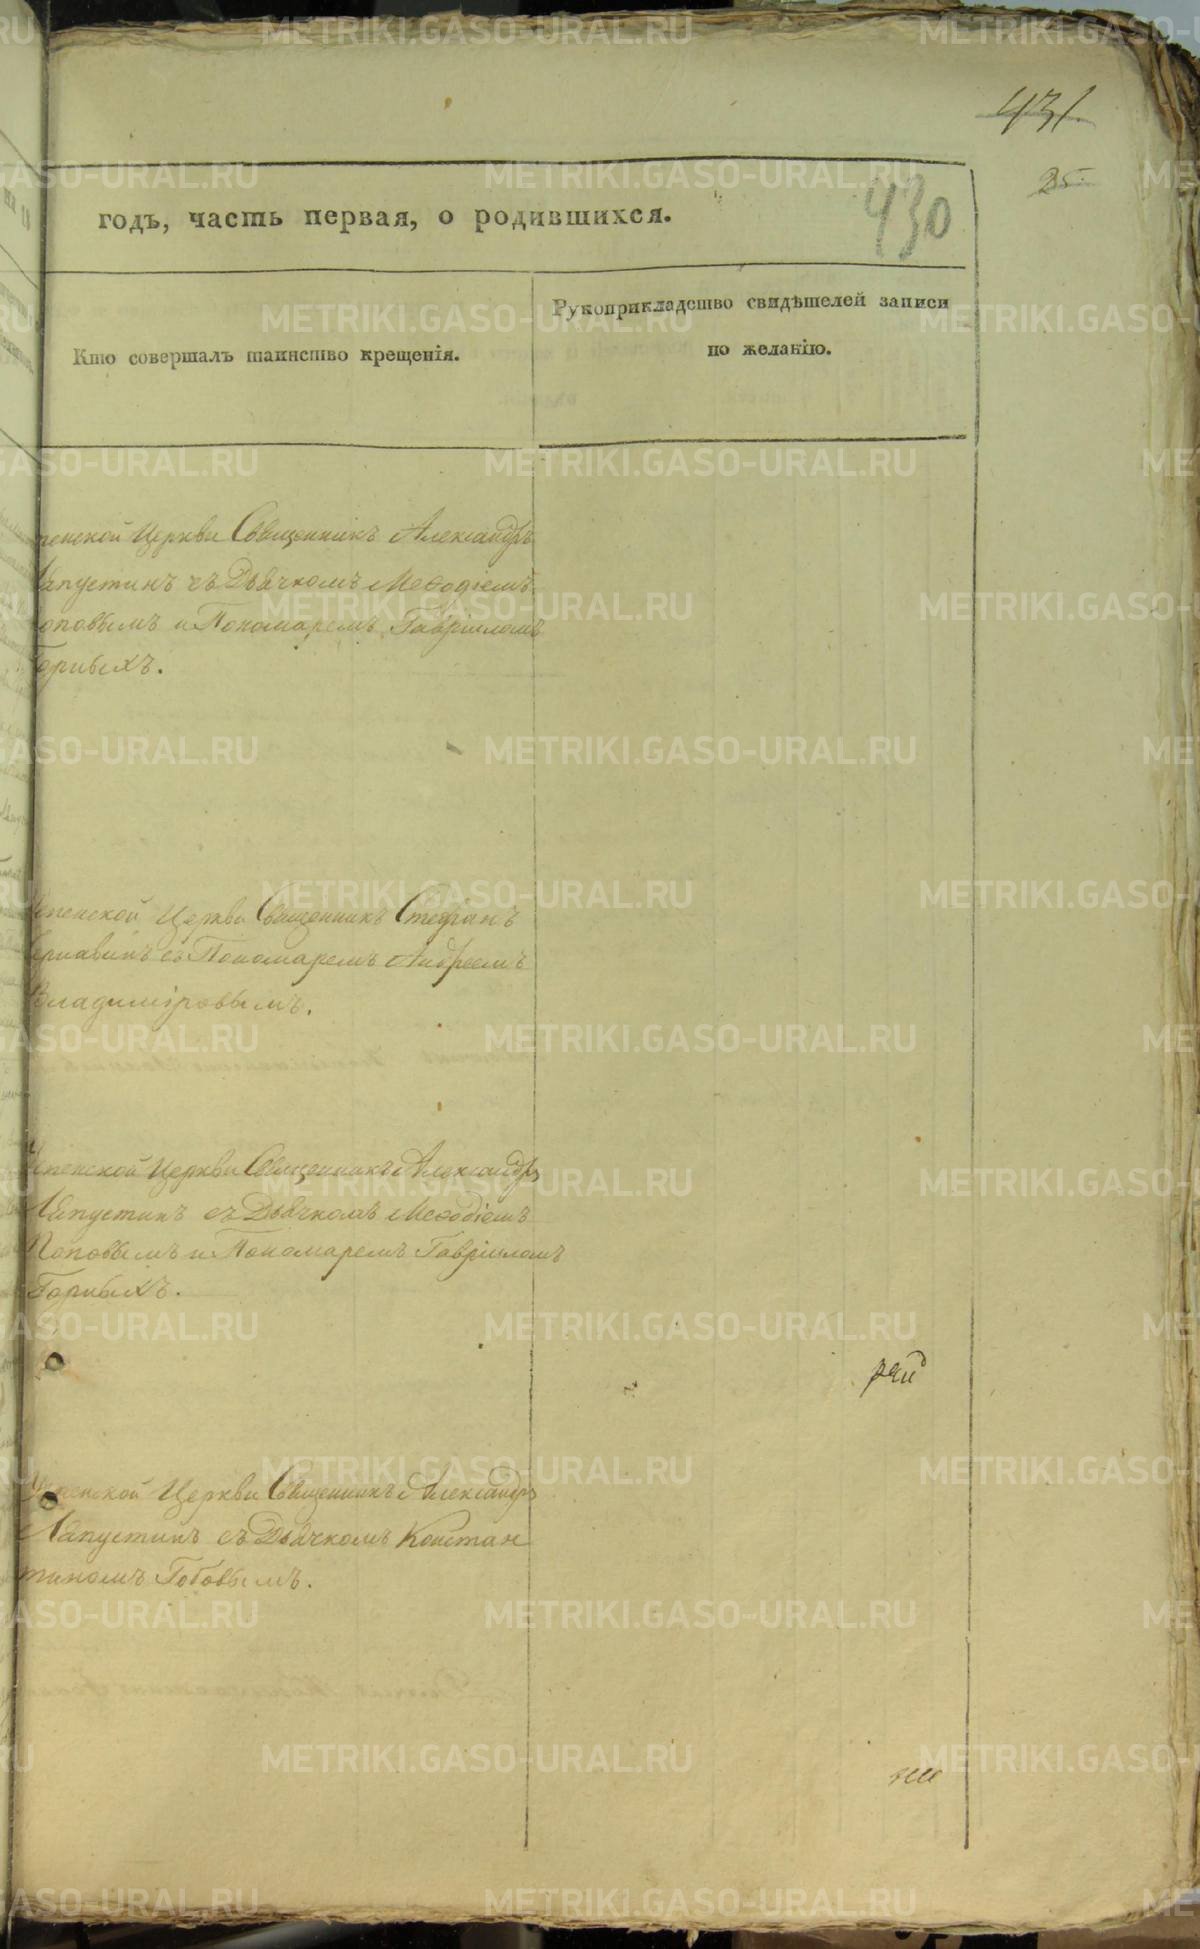 431.
25.
430
годъ, часть первая, о родившихся.
Кто совершалъ таинство крещенія.
Рукоприкладство свидѣтелей записи
по желанію.
пенской Церкви Священникъ Александръ
Лапустинъ съ Дьячкомъ Меѳодіемъ
оповымъ и Пономаремъ Гавріиломъ
Горныхъ.
Успенской Церкви Священникъ Стефанъ
съ Пономаремъ Андреемъ
Владиміровымъ.
Успенской Церкви Священникъ Александръ
Лапустинъ съ Дьячкомъ Меѳодіемъ
Поповымъ и Пономаремъ Гавріиломъ
Горныхъ.
Успенской Церкви Священникъ Александръ
Лапустинъ съ Дьячкомъ Констан
тиномъ
METRIKI.GASO-URAL.RU